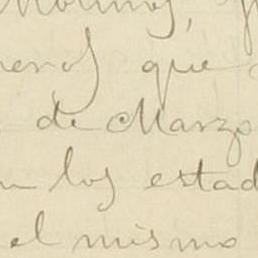 Molinos,
que
de Marzo
los estad
el mismo